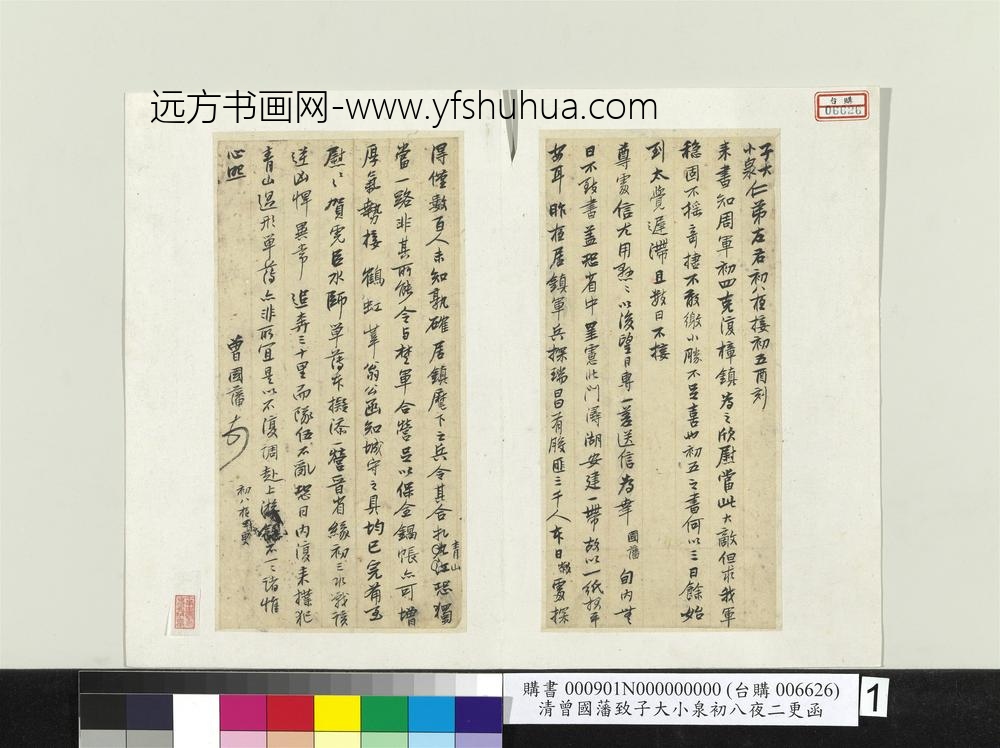 远方书画网-www.yfshuhua.com
台購
06626
子大
小泉仁弟左右初八夜接初五酉刻
來書知周軍初四克復樟鎮為之欣慰當此大敵但求我軍
穩固不搖奇捷不敢繳小勝不足喜也初五之書何以三日餘始
到太覺遲滯且數日不接
尊處信尤用懸懸以後望日專一差送信為幸國藩旬內無
日不致書蓋恐省中 憲 潯湖安建一帶 以一紙報平
安耳昨夜居鎮軍兵探瑞昌有股匪三千人本日敝處探
得僅數百人未知孰確居鎮麾下之兵令其合扎青山恐獨
當一路非其所能令与楚軍合營足以保全鍋帳亦可增
厚氣勢接鶴虹峯翁公函知城守之具均已完備至
慰之賀憲臣水師單薄本擬添一營晉省緣初三水戰該
逆凶悍異常追奔三十里而隊伍不亂恐日內復來撲犯
青山過形單薄亦非所宜是以不復調赴上游 不一一諸惟
心照
曾國藩
初八夜二更
購書 000901N000000000 (台購 006626)
清曾國藩致子大小泉初八夜二更函
1